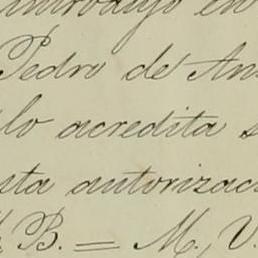 introdujo en
Pedro de An
lo acredita s
sta autorizac
B. = M., V.